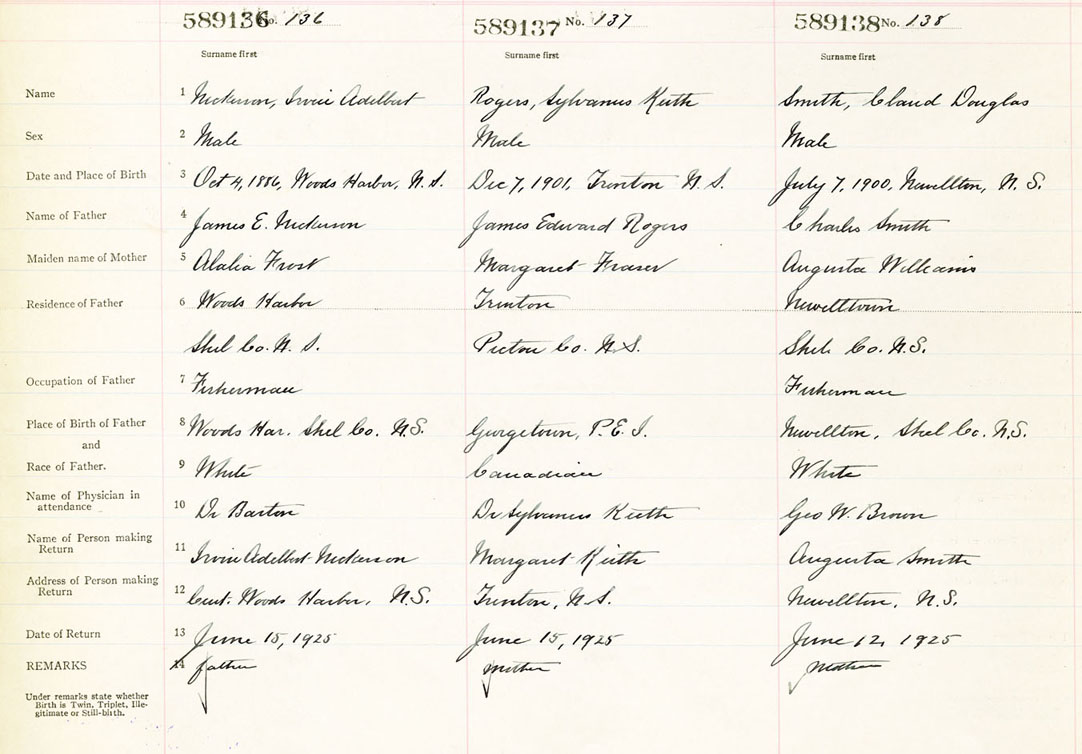 589136 No. 136 589137 No. 137 589138 No. 138
Surname first Surname first Surname first
Name 1 Nickerson, Irvin Adelbert Rogers, Sylvanus Keith Smith, Claud Douglas
Sex 2 Male Male Male
Date and Place of Birth 3 Oct 4, 1886, Woods Harbor, N.S. Dec 7, 1901, Trenton N.S. July 7, 1900, Newellton, N.S.
Name of Father 4 James E. Nickerson James Edward Rogers Charles Smith
Maiden name of Mother 5 Alalia Frost Margaret Fraser Augusta Williams
Residence of Father 6 Woods Harbor Trenton Newelltown
Shel Co. N.S. Pictou Co. N.S. Shel. Co. N.S.
Occupation of Father 7 Fisherman Fisherman
Place of Birth of Father 8 Woods Har. Shel Co. N.S. Georgetown, P.E.I. Newellton, Shel Co. N.S.
and
Race of Father. 9 White Canadian White
Name of Physician in
attendance 10 Dr Barton Dr Sylvanus Keith Geo W. Brown
Name of Person making
Return 11 Irvin Adelbert Nickerson Margaret Keith Augusta Smith
Address of Person making
Return 12 Cent. Woods Harbor, N.S. Trenton, N.S. Newellton, N.S.
Date of Return 13 June 15, 1925 June 15, 1925 June 12, 1925
REMARKS 14 father mother mother
Under remarks state whether
Birth is Twin, Triplet, Ille-
gitimate or Still-birth.